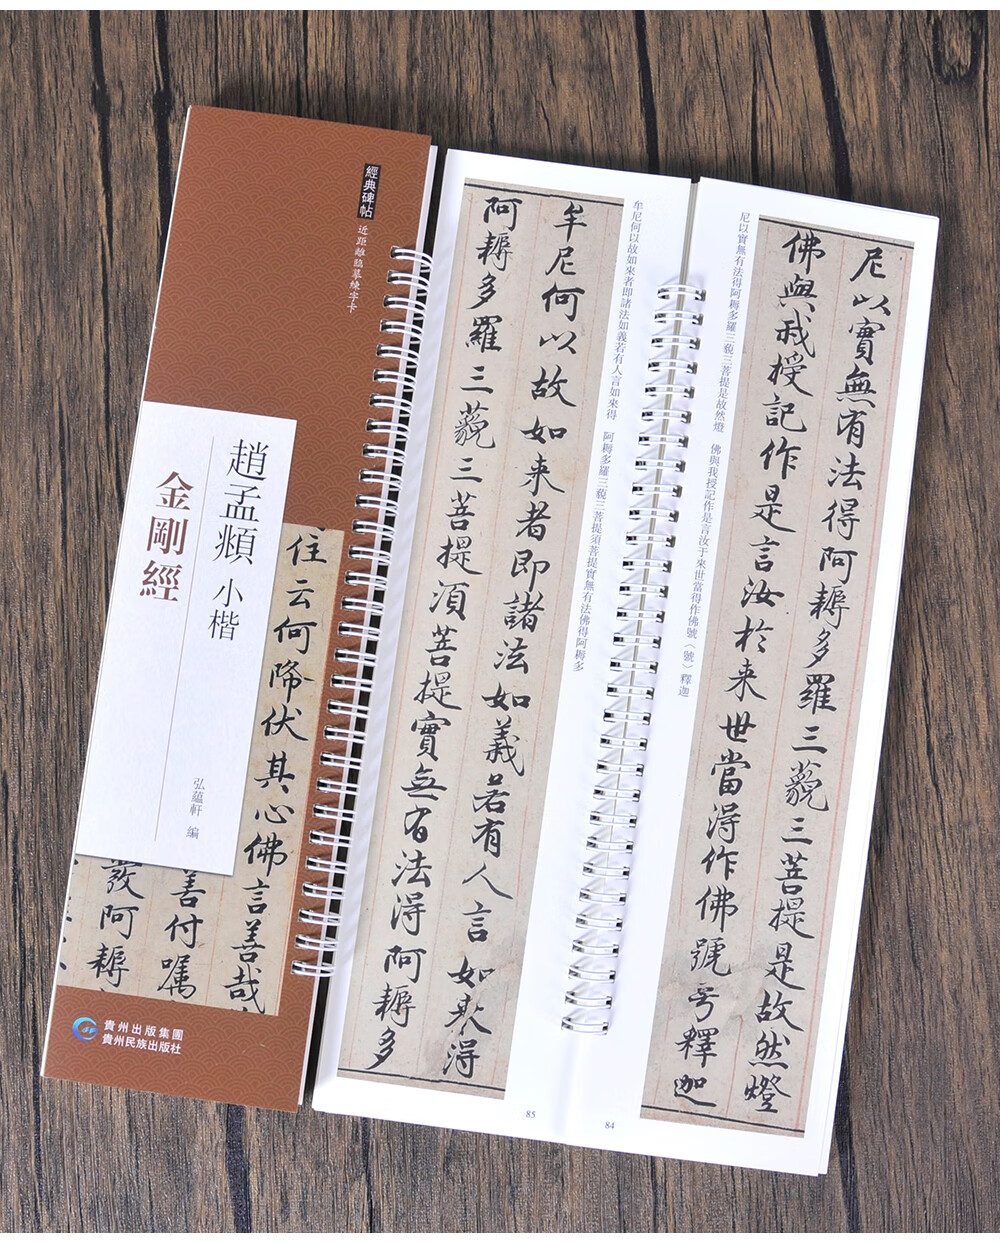 經典碑帖
近距離臨摹練字卡
趙孟頫 小楷
金剛經
弘蘊軒 编
住云何降伏其心佛言善哉
善付嘱
發阿耨
貴州出版集團
貴州民族出版社
尼以實無有法得阿耨多羅三藐三菩提是故然燈
佛與我授記作是言汝於来世當得作佛號号釋迦
尼以實無有法得阿耨多羅三藐三菩提是故然燈
佛與我授記作是言汝于來世當得作佛號〈號〉釋迦
84
牟尼何以故如来者即諸法如義若有人言如来得
阿耨多羅三藐三菩提湏菩提實無有法得阿耨多
牟尼何以故如來者即諸法如義若有人言如來得
阿耨多羅三藐三菩提須菩提實無有法佛得阿耨多
85